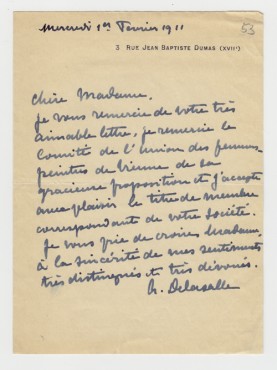 Mercredi 1er Février 1911
53
3 RUE JEAN BAPTISTE DUMAS (XVIIe)
Chère Madame,
je vous remercie de votre très
aimable lettre, je remercie le
Comité de l'union des femmes
peintres de Vienne de sa
gracieuse proposition et j'accepte
avec plaisir le titre de membre
correspondante de votre Société.
je vous prie de croire, Madame,
à la sincérité de mes sentiments
très distingués et très dévoués.
A. Delasalle